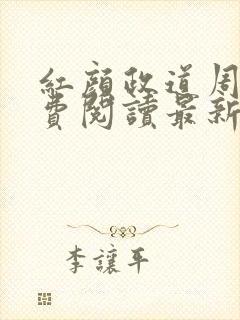 紅顔政道周
費閱讀最新
李讓平